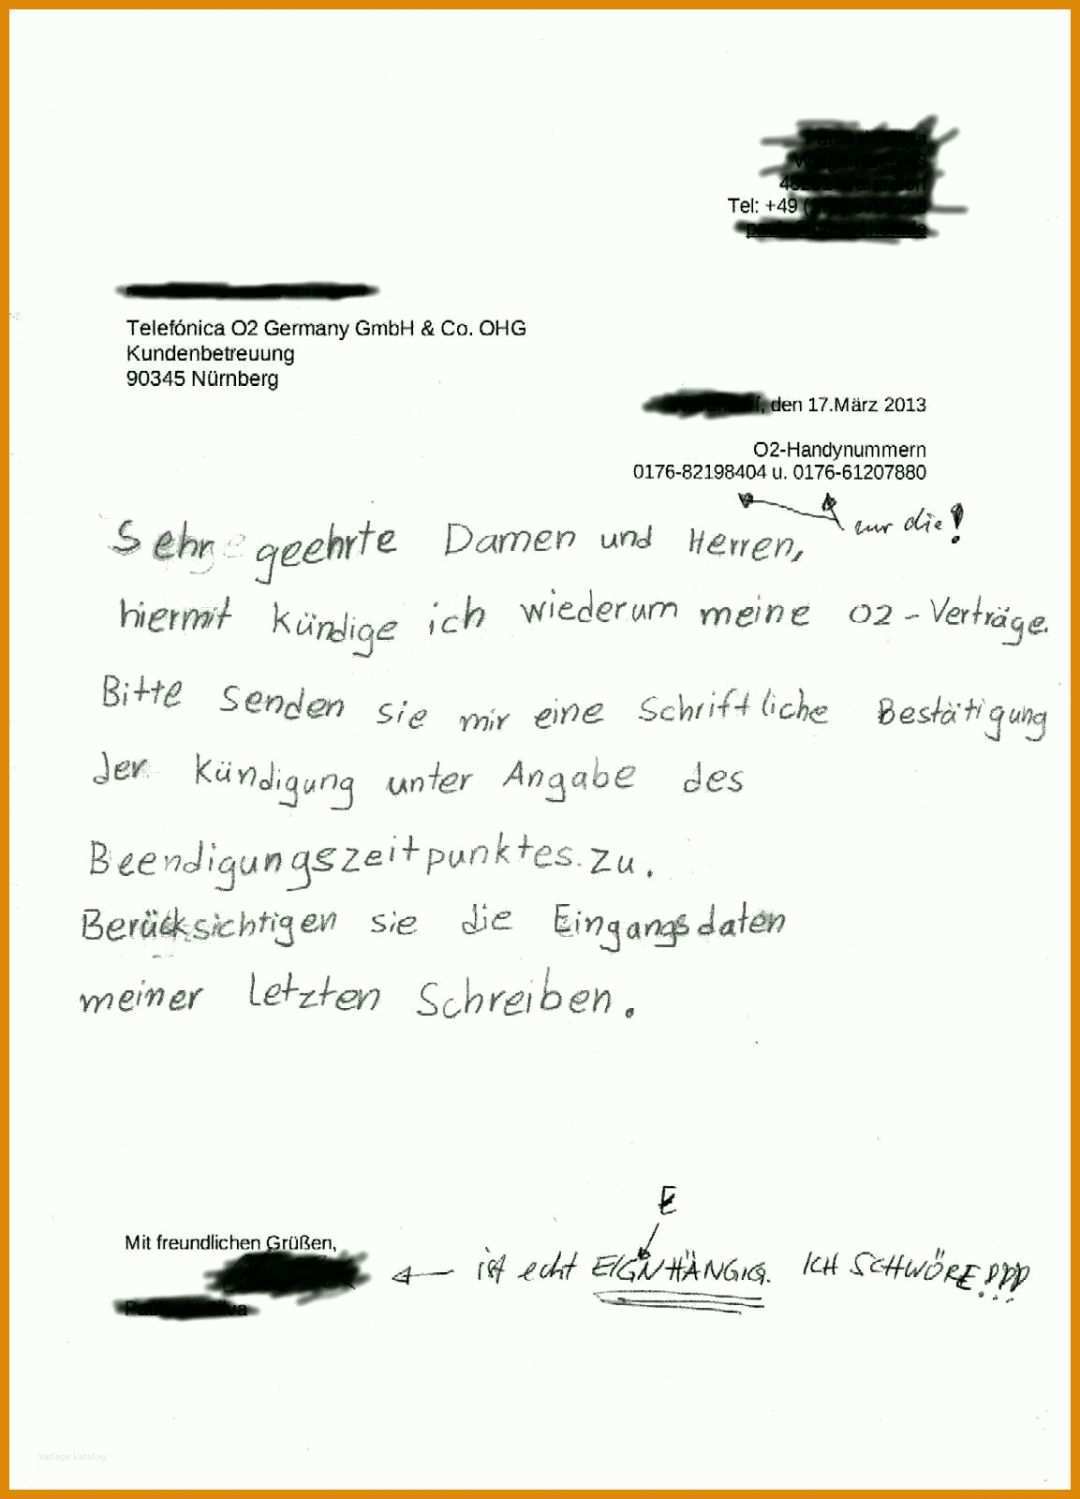 Tel: +49 (
Telefónica O2 Germany GmbH & Co. OHG
Kundenbetreuung
90345 Nürnberg
, den 17.März 2013
O2-Handynummern
0176-82198404 u. 0176-61207880
nur die!
Sehr geehrte Damen und Herren,
hiermit kündige ich wiederum meine O2-Verträge.
Bitte senden sie mir eine Schriftliche Bestätigung
der Kündigung unter Angabe des
Beendigungszeitpunktes zu.
Berücksichtigen sie die Eingangsdaten
meiner letzten Schreiben.
Mit freundlichen Grüßen,
E
ist echt EIGNHÄNGIG. ICH SCHWÖRE!!!